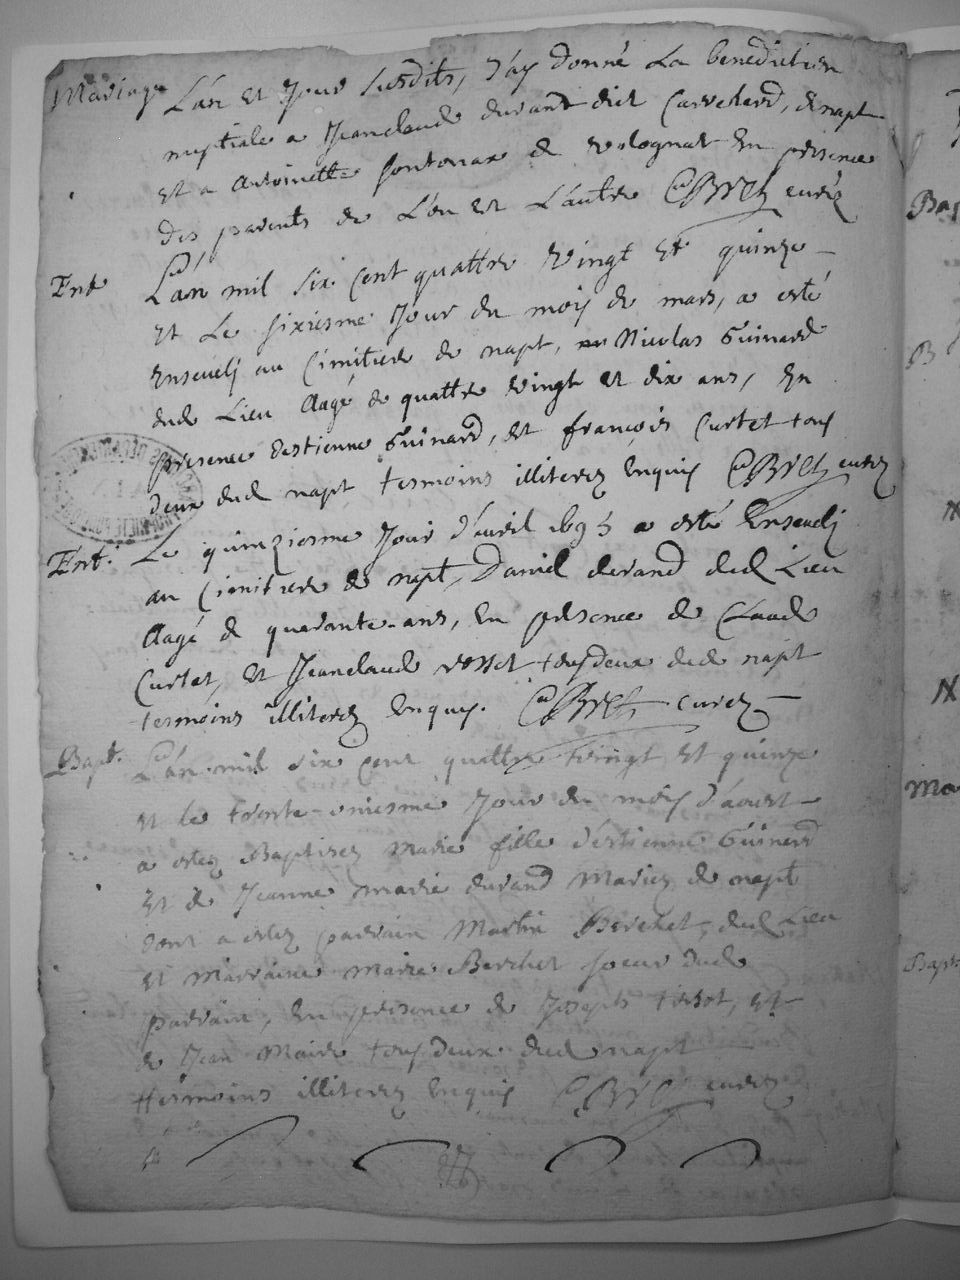 Mariage L'an et Jour susdits, J'ay donné La benediction
nuptiale a Jeanclaude durand dict Curvehard, de napt
et a Antoinette fontenax de volognat En presence
des parents de L'un et L'autre CBReh curéz
Ent L'an mil six Cent quattre vingt et quinze
et Le sixiesme Jour du mois de mars, a esté
Ensevelj au Cimitiere de napt, Nicolas Guinard
dud Lieu Aagé de quattre vingt et dix ans, En
presence d'estienne Guinard, et francois Curtet tous
deux dud napt tesmoins illiterez Enquis curéz
Ent. Le quinziesme Jour d'avril 1695 a esté Ensevelj
au Cimitiere de napt, Daniel durand dud Lieu
Aagé de quarante-ans, En presence de Claude
Curtet, et Jeanclaude rosset tousdeux dud napt
tesmoins illiterez Enquis. curéz
Bapt. L'an mil six cent quattre vingt et quinze
et le trente-uniesme Jour du mois d'aoust
a estez Baptisez Marie fille d'estienne Guinard
Et de Jeanne marie durand Mariez de napt
dont a estez parrain Martin Berchet, dud Lieu
et Marraine Marie Berchet soeur dud
parrain, En presence de Joseph tissot, et
de Jean Maire tousdeux dud napt
ttesmoins illiterez Enquis curéz